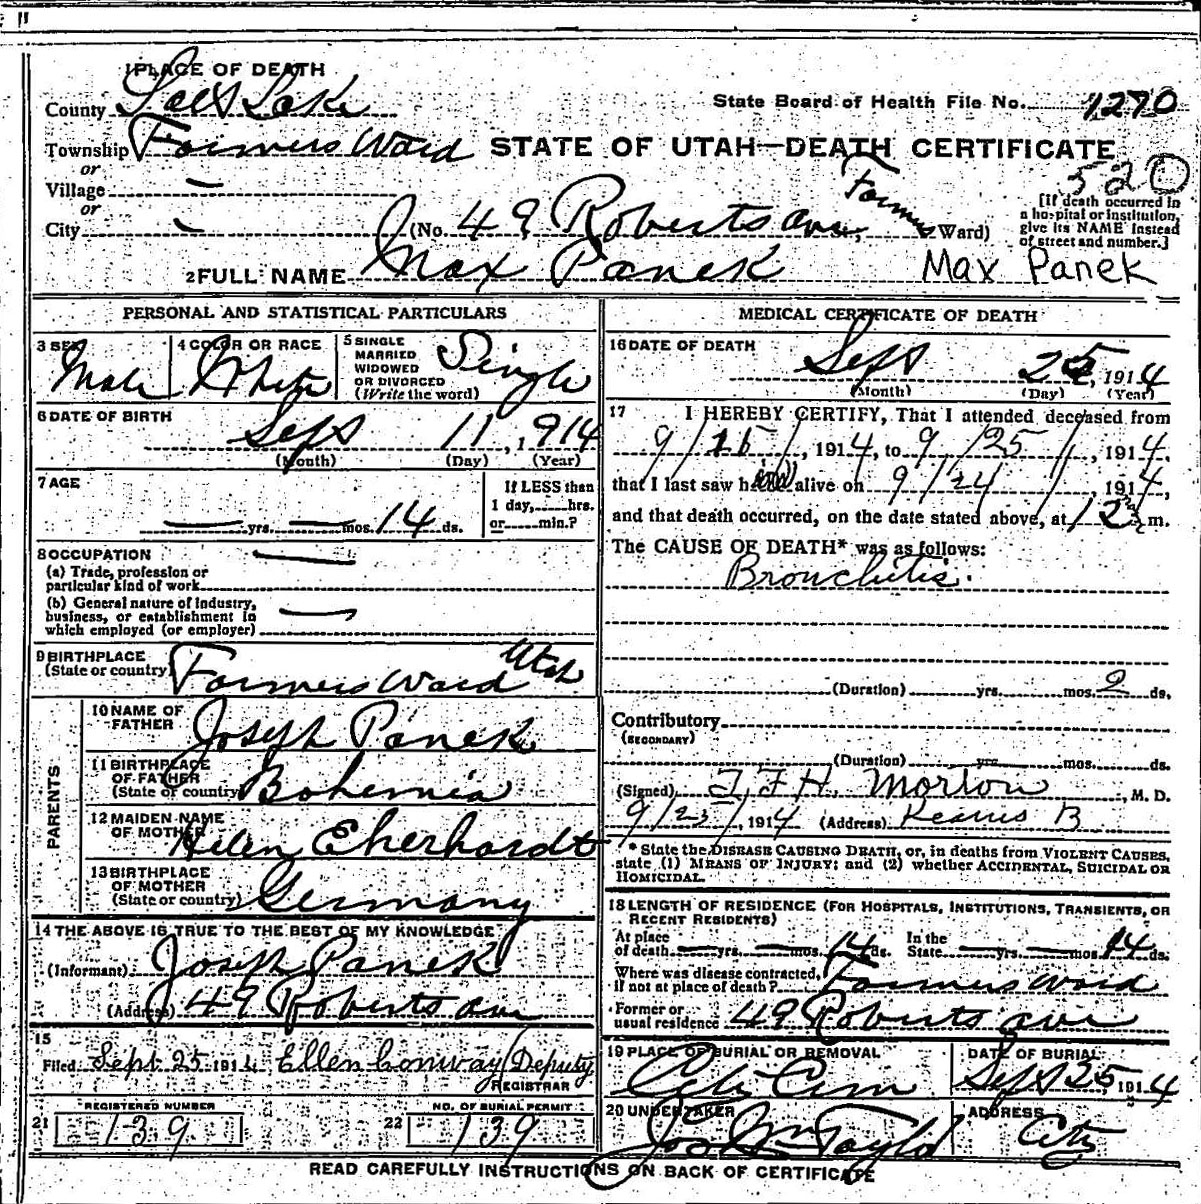 1 PLACE OF DEATH
County Salt Lake
State Board of Health File No. 1270
Township Farmers Ward STATE OF UTAH—DEATH CERTIFICATE
or
Village —
520
or
City —
(No. 49 Roberts ave, Farmers Ward)
[If death occurred in
a hospital or institution,
give its NAME instead
of street and number.]
2 FULL NAME Max Panek Max Panek
PERSONAL AND STATISTICAL PARTICULARS
3 SEX Male
4 COLOR OR RACE White
5 SINGLE
MARRIED
WIDOWED
OR DIVORCED
(Write the word) Single
6 DATE OF BIRTH Sept 11, 1914
(Month) (Day) (Year)
7 AGE
— yrs. — mos. 14 ds.
If LESS than
1 day, hrs.
or min.?
8 OCCUPATION
(a) Trade, profession or
particular kind of work —
(b) General nature of industry,
business, or establishment in
which employed (or employer) —
9 BIRTHPLACE
(State or country) Farmers Ward Utah
PARENTS
10 NAME OF
FATHER Joseph Panek
11 BIRTHPLACE
OF FATHER
(State or country) Bohemia
12 MAIDEN NAME
OF MOTHER Helen Eherhardt
13 BIRTHPLACE
OF MOTHER
(State or country) Germany
14 THE ABOVE IS TRUE TO THE BEST OF MY KNOWLEDGE
(Informant) Joseph Panek
(Address) 49 Roberts ave
15
Filed Sept 25 1914 Ellen Conway/Deputy
REGISTRAR
REGISTERED NUMBER
21 139
NO. OF BURIAL PERMIT
22 139
MEDICAL CERTIFICATE OF DEATH
16 DATE OF DEATH
Sept 25, 1914
(Month) (Day) (Year)
17 I HEREBY CERTIFY, That I attended deceased from
9/ /, 1914, to 9/25/, 1914,
that I last saw him alive on 9/24/, 1914,
and that death occurred, on the date stated above, at 12 m.
The CAUSE OF DEATH* was as follows:
Bronchitis.
(Duration) yrs. mos. 2 ds.
Contributory
(SECONDARY)
(Duration) yrs. mos. ds.
(Signed) T. F. H. Morton, M. D.
9/25/, 1914 (Address) Kearns B
* State the DISEASE CAUSING DEATH, or, in deaths from VIOLENT CAUSES,
state (1) MEANS OF INJURY; and (2) whether ACCIDENTAL, SUICIDAL OR
HOMICIDAL.
18 LENGTH OF RESIDENCE (FOR HOSPITALS, INSTITUTIONS, TRANSIENTS, OR
RECENT RESIDENTS)
At place
of death — yrs. — mos. 14 ds.
In the
State — yrs. — mos. 14 ds.
Where was disease contracted,
if not at place of death? Farmers ward
Former or
usual residence 49 Roberts ave
19 PLACE OF BURIAL OR REMOVAL
City Cem
DATE OF BURIAL
Sept 25, 1914
20 UNDERTAKER
Jos Wm Taylor
ADDRESS
City
READ CAREFULLY INSTRUCTIONS ON BACK OF CERTIFICATE